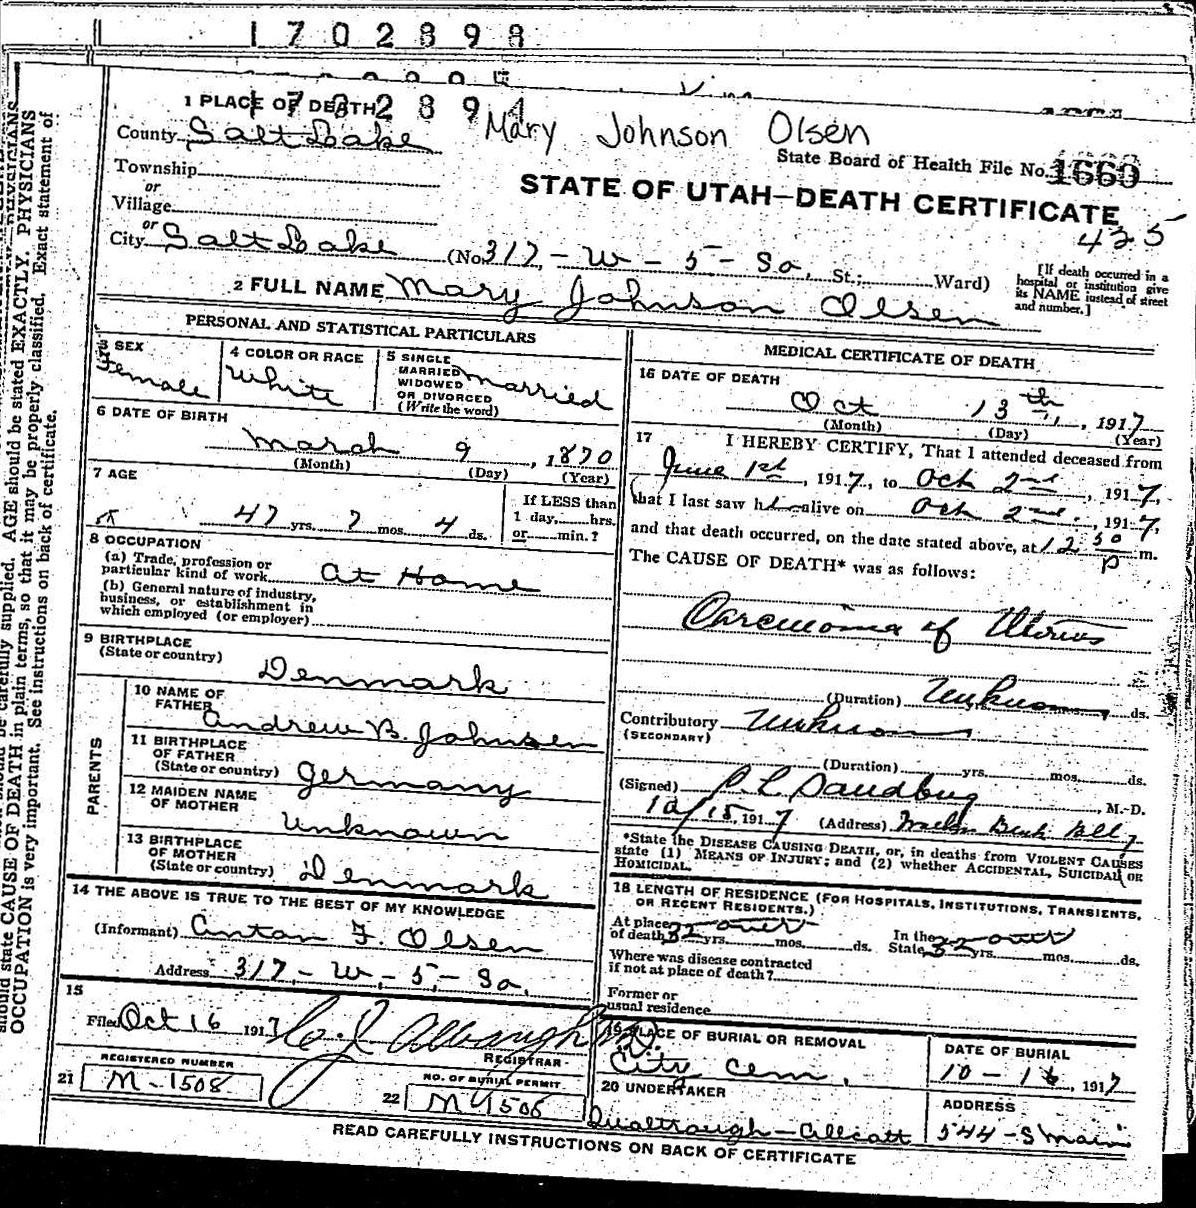 1702898
1 PLACE OF DEATH
County Salt Lake
Mary Johnson Olsen
State Board of Health File No. 1660
Township
or
Village
or
City Salt Lake (No. 317 - W - 5 - So. St.; Ward)
STATE OF UTAH—DEATH CERTIFICATE
425
[If death occurred in a
hospital or institution give
its NAME instead of street
and number.]
2 FULL NAME Mary Johnson Olsen
PERSONAL AND STATISTICAL PARTICULARS
3 SEX
Female
4 COLOR OR RACE
White
5 SINGLE
MARRIED
WIDOWED
OR DIVORCED
(Write the word)
Married
6 DATE OF BIRTH
March 9, 1870
(Month) (Day) (Year)
7 AGE
47 yrs. 7 mos. 4 ds.
If LESS than
1 day, hrs.
or min.?
8 OCCUPATION
(a) Trade, profession or
particular kind of work At Home
(b) General nature of industry,
business, or establishment in
which employed (or employer)
9 BIRTHPLACE
(State or country)
Denmark
PARENTS
10 NAME OF
FATHER
Andrew B. Johnsen
11 BIRTHPLACE
OF FATHER
(State or country) Germany
12 MAIDEN NAME
OF MOTHER
Unknown
13 BIRTHPLACE
OF MOTHER
(State or country) Denmark
14 THE ABOVE IS TRUE TO THE BEST OF MY KNOWLEDGE
(Informant) Anton F. Olsen
Address 317 - W. 5, - So.
15
Filed Oct 16 1917
REGISTRAR
REGISTERED NUMBER
21 M-1508
NO. OF BURIAL PERMIT
22 M 1506
MEDICAL CERTIFICATE OF DEATH
16 DATE OF DEATH
Oct 13th, 1917
(Month) (Day) (Year)
17 I HEREBY CERTIFY, That I attended deceased from
June 1st, 1917, to Oct 2nd, 1917,
that I last saw h alive on Oct 2nd, 1917,
and that death occurred, on the date stated above, at 12 50 P m.
The CAUSE OF DEATH* was as follows:
Carcinoma of Uterus
(Duration) Unknown ds.
Contributory Unknown
(SECONDARY)
(Duration) yrs. mos. ds.
(Signed) , M.D.
10/15, 1917 (Address)
*State the DISEASE CAUSING DEATH, or, in deaths from VIOLENT CAUSES
state (1) MEANS OF INJURY; and (2) whether ACCIDENTAL, SUICIDAL OR
HOMICIDAL.
18 LENGTH OF RESIDENCE (FOR HOSPITALS, INSTITUTIONS, TRANSIENTS,
OR RECENT RESIDENTS.)
At place
of death 32 over yrs. mos. ds.
In the
State 32 over yrs. mos. ds.
Where was disease contracted
if not at place of death?
Former or
usual residence
19 PLACE OF BURIAL OR REMOVAL
City Cem.
DATE OF BURIAL
10-16, 1917
20 UNDERTAKER
ADDRESS
544 - S Main
READ CAREFULLY INSTRUCTIONS ON BACK OF CERTIFICATE
should state CAUSE OF DEATH in plain terms, so that it may be properly classified. Exact statement of
OCCUPATION is very important. See instructions on back of certificate.